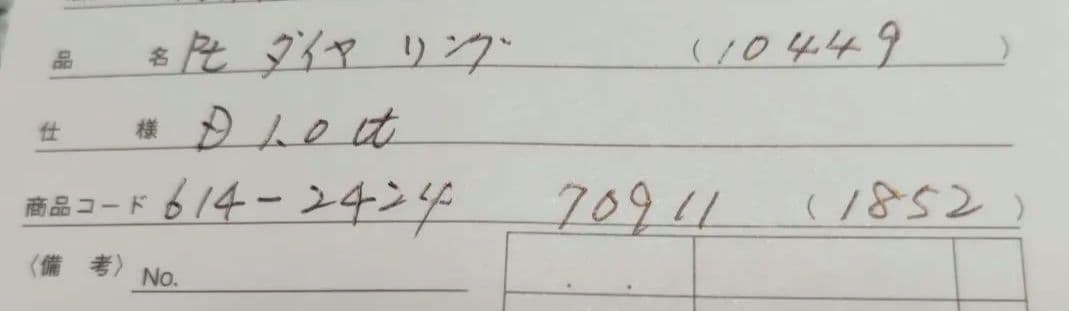 品名 Pt ダイヤ リング (10449)
仕様 D 1.0 ct
商品コード 614-2424 70911 (1852)
〈備考〉 No.